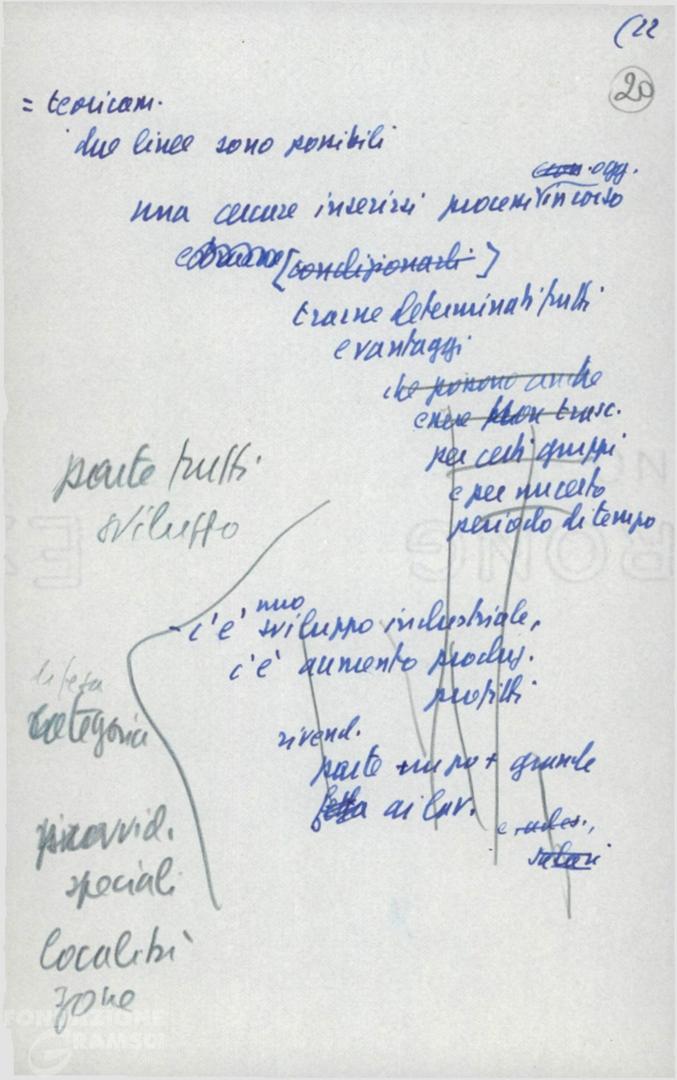 (22
20
= teoricam.
due linee sono possibili
con. ogg.
una cercare inserirsi processi in corso
e [condizionarli]
trarne determinati frutti
e vantaggi
che possono anche
essere non trasc.
per certi gruppi
e per un certo
periodo di tempo
parte frutti
sviluppo
- c'è uno sviluppo industriale,
c'è aumento produz.
profitti
difesa
categoria
rivend.
parte un po + grande
ai lav.
provvid.
speciali
salari
località
zone
FONDAZIONE
GRAMSCI